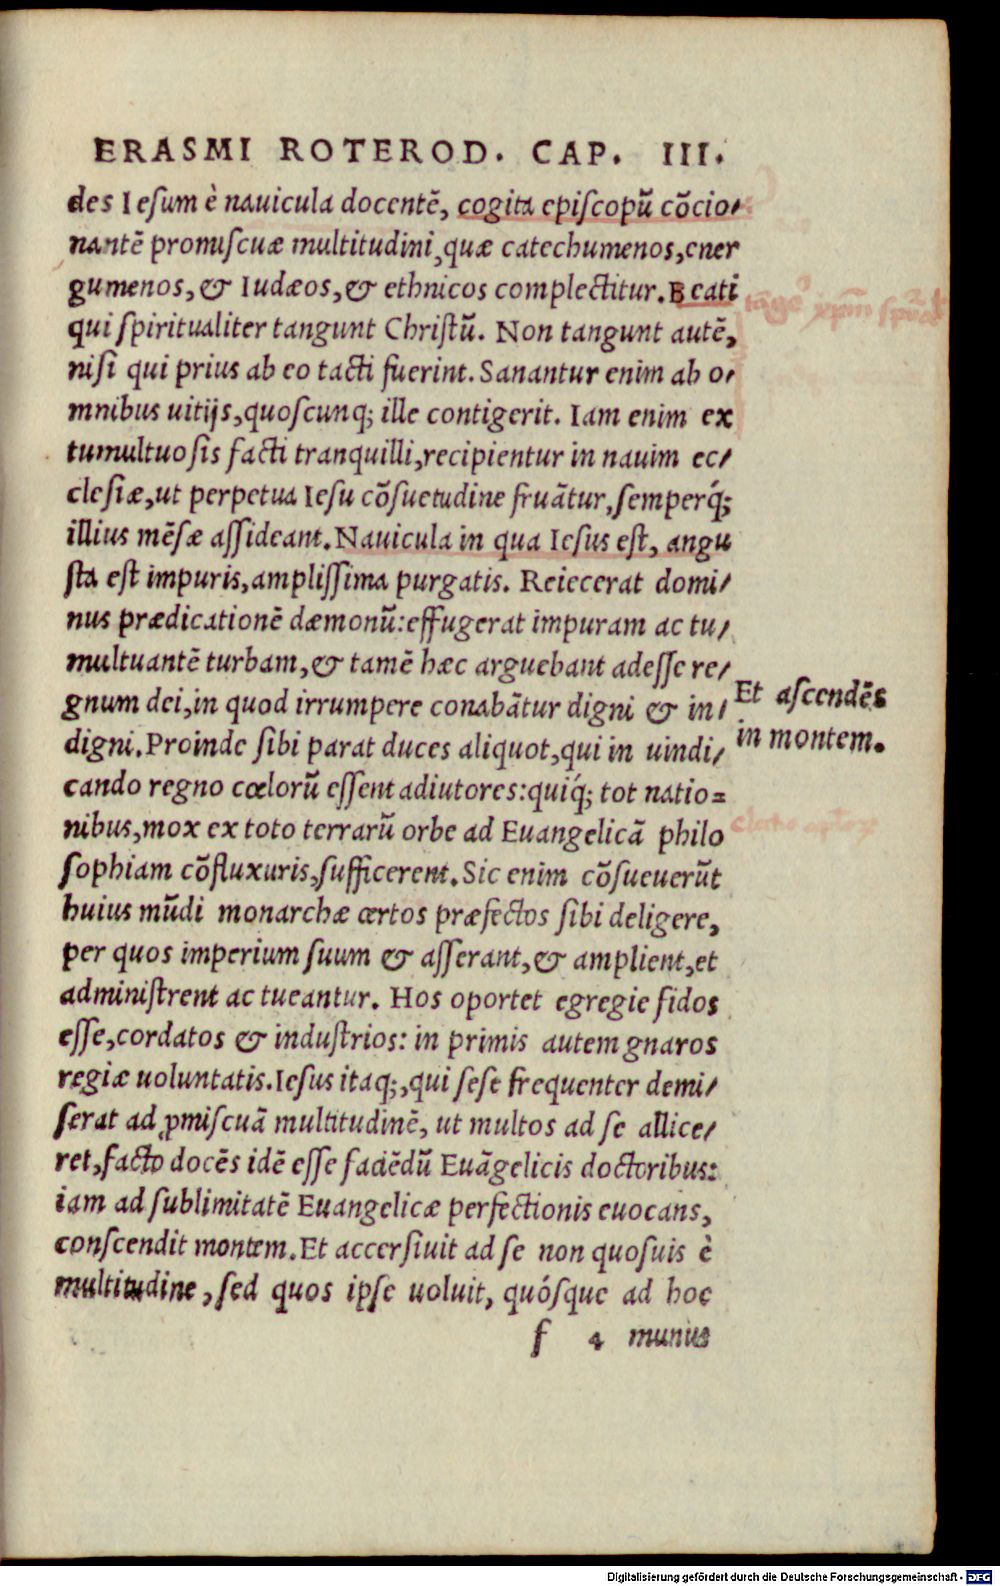 ERASMI ROTEROD. CAP. III.
des Iesum è nauicula docentē, cogita episcopū cōcio/
nantē promiscuæ multitudini, quæ catechumenos, ener
gumenos, & Iudæos, & ethnicos complectitur. Beati
qui spiritualiter tangunt Christū. Non tangunt autē,
nisi qui prius ab eo tacti fuerint. Sanantur enim ab o/
mnibus uitijs, quoscunq; ille contigerit. Iam enim ex
tumultuosis facti tranquilli, recipientur in nauim ec/
clesiæ, ut perpetua Iesu cōsuetudine fruātur, semperq́;
illius mēsæ assideant. Nauicula in qua Iesus est, angu
sta est impuris, amplissima purgatis. Reiecerat domi/
nus prædicationē dæmonū: effugerat impuram ac tu/
multuantē turbam, & tamē hæc arguebant adesse re/
gnum dei, in quod irrumpere conabātur digni & in/
digni. Proinde sibi parat duces aliquot, qui in uindi/
Et ascendēs
in montem.
cando regno cœlorū essent adiutores: quiq́; tot natio=
nibus, mox ex toto terrarū orbe ad Euangelicā philo
sophiam cōfluxuris, sufficerent. Sic enim cōsueuerūt
huius mūdi monarchæ certos præfectos sibi deligere,
per quos imperium suum & asserant, & amplient, et
administrent ac tueantur. Hos oportet egregie fidos
esse, cordatos & industrios: in primis autem gnaros
regiæ uoluntatis. Iesus itaq;, qui sese frequenter demi/
serat ad ꝓmiscuā multitudinē, ut multos ad se allice/
ret, facto docēs idē esse faciēdū Euāgelicis doctoribus:
iam ad sublimitatē Euangelicæ perfectionis euocans,
conscendit montem. Et accersiuit ad se non quosuis è
multitudine, sed quos ipse uoluit, quósque ad hoc
f 4 munus
Digitalisierung gefördert durch die Deutsche Forschungsgemeinschaft - DFG